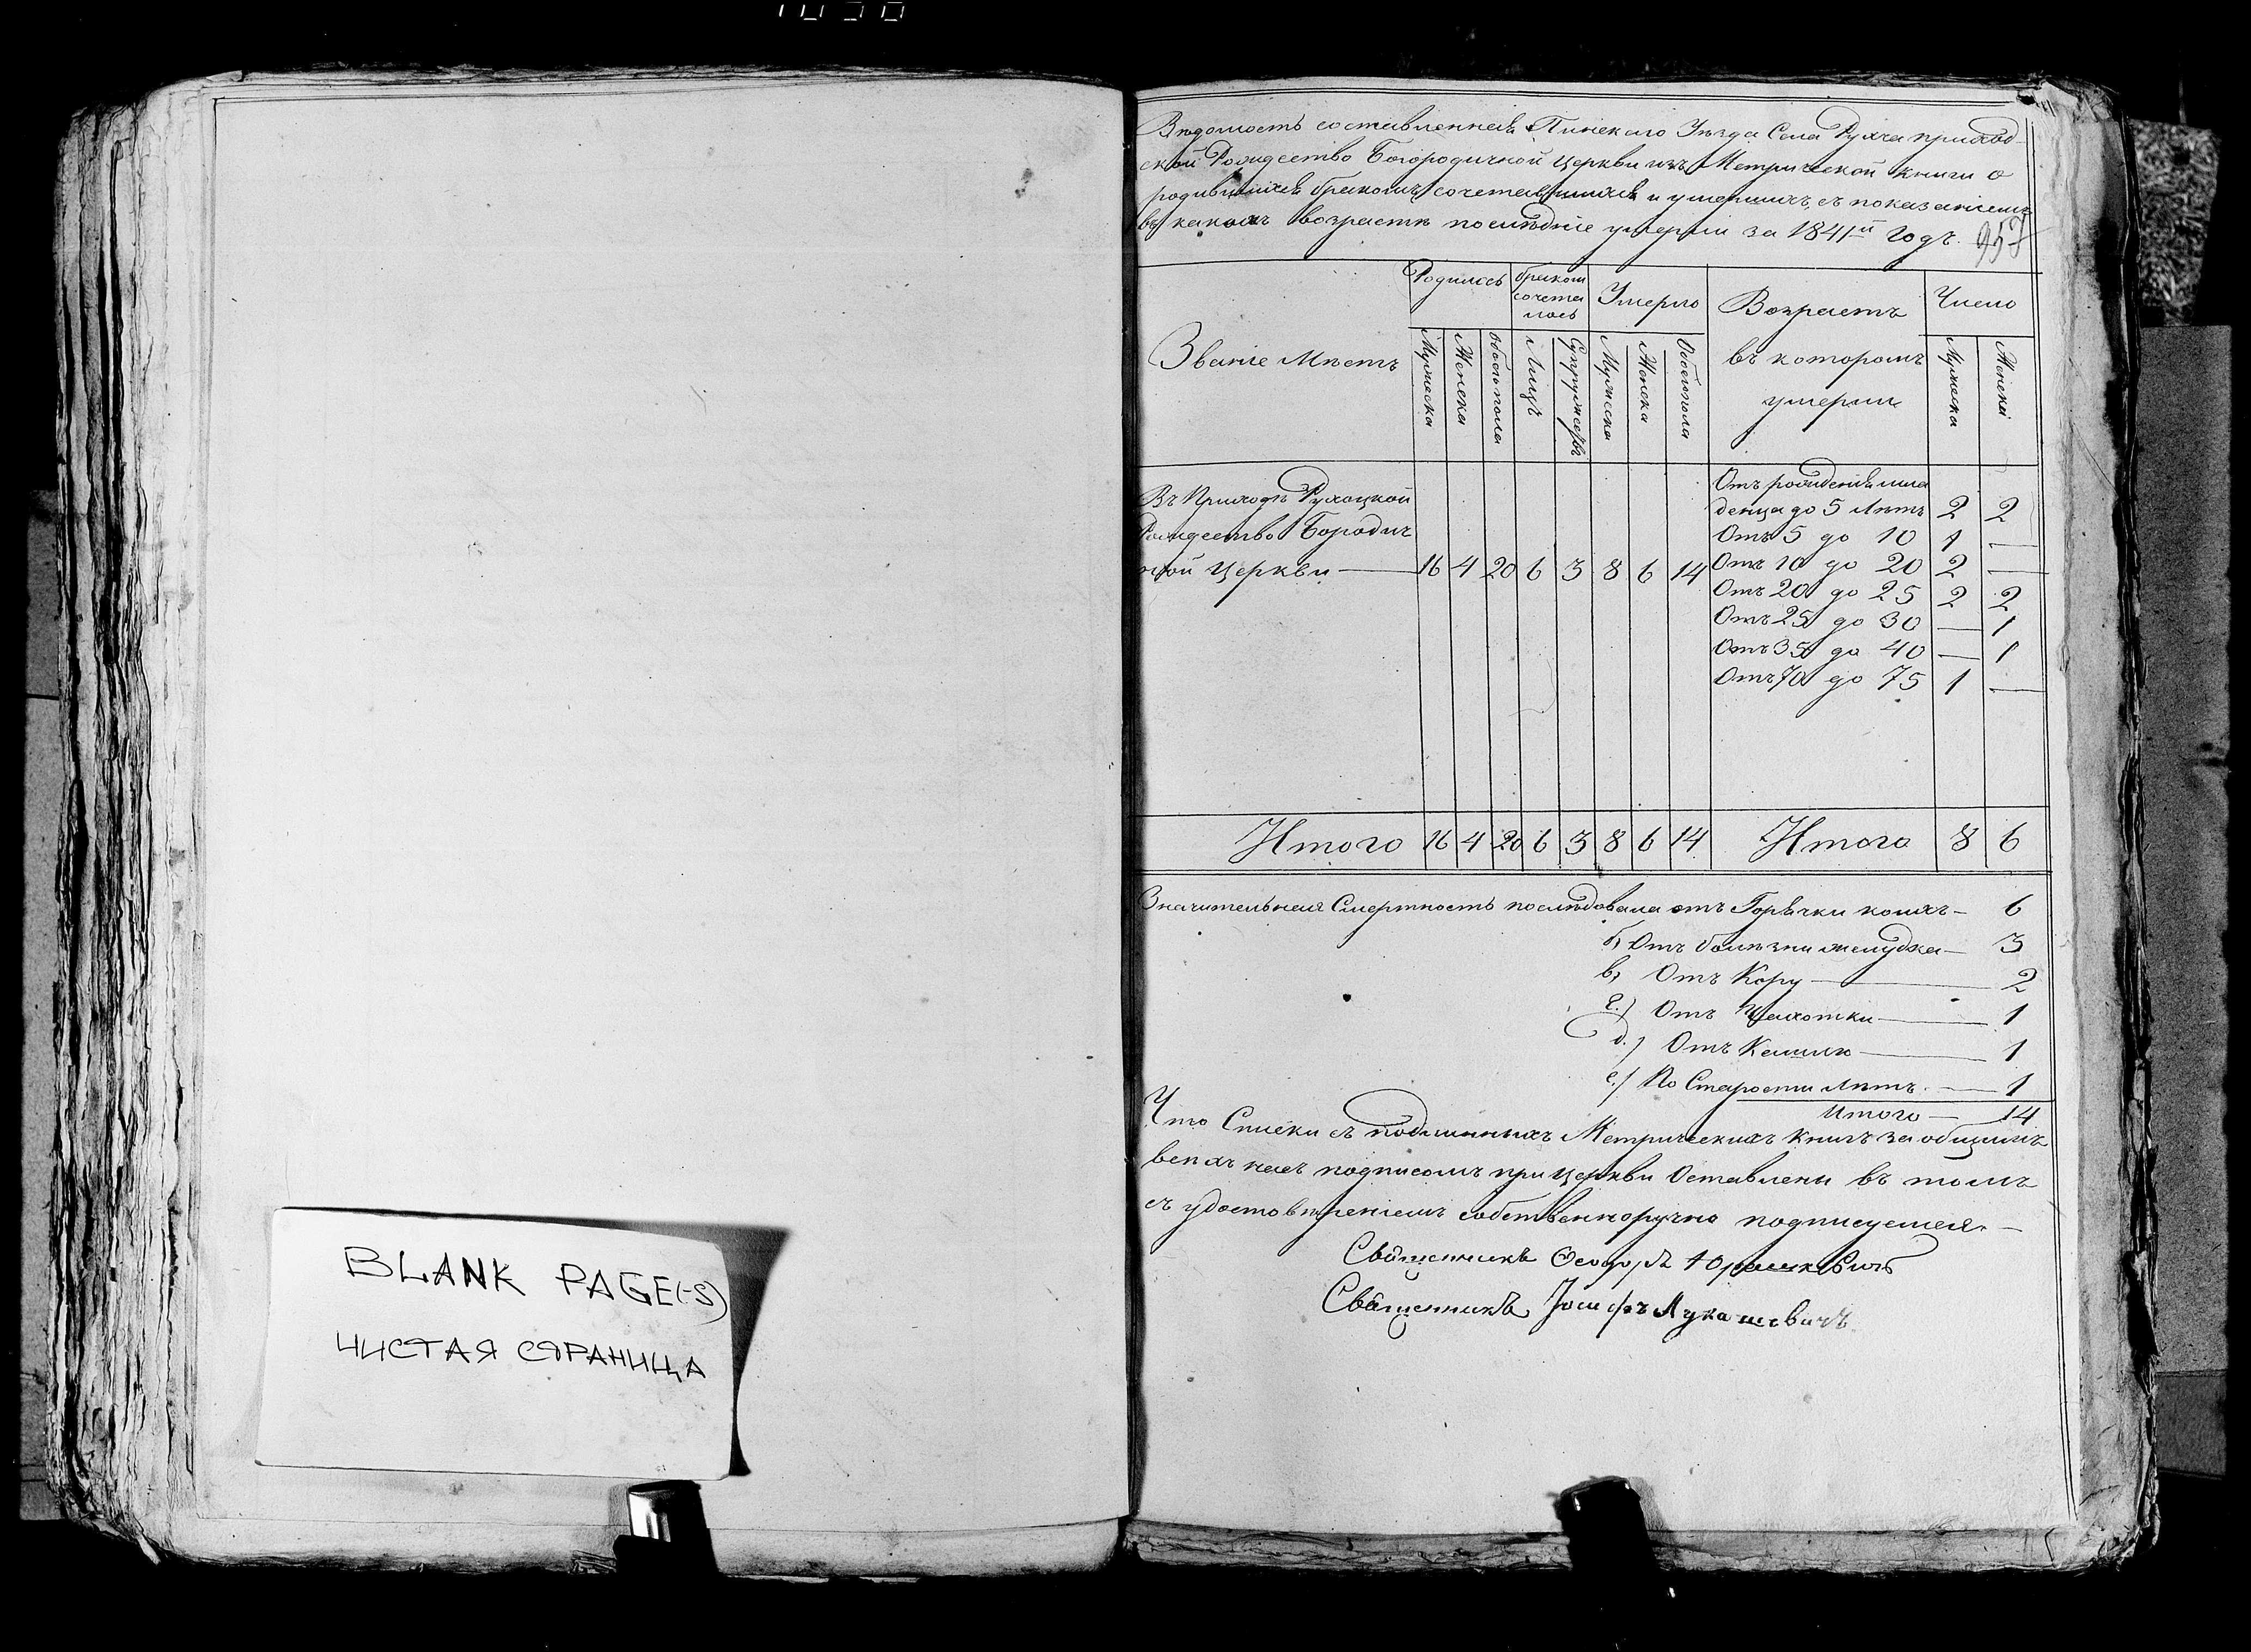 BLANK PAGE(-S)
ЧИСТАЯ СТРАНИЦА
Вѣдомость составленная Пинскаго Уѣзда Села Рухча приход-
ской Рождество Богородичной Церкви изъ Метрической книги о
родившихся бракомъ сочетавшихся и умершихъ, съ показаніемъ
въ какомъ возрастѣ послѣдніе умерли за 1841й Годъ. 957
Званіе Мѣстъ
Родилось
бракомъ
сочета
лось
Умерло
Возрастъ
въ которомъ
умерли
Число
Мужеска
Женска
обоего пола
Лицъ
Супружествъ
Мужеска
Женска
Обоего пола
Мужска
Женска
Въ Приходѣ Рухоцкой
Рождество Бородич
ной Церкви — 16 4 20 6 3 8 6 14
Отъ рожденія мла
денца до 5 Лѣтъ 2 2
Отъ 5 до 10 1 —
Отъ 10 до 20 2 —
Отъ 20 до 25 2 2
Отъ 25 до 30 — 1
Отъ 35 до 40 — 1
Отъ 70 до 75 1 —
Итого 16 4 20 6 3 8 6 14 Итого 8 6
Значительная Смертность послѣдовала отъ Горячки — 6
б, Отъ болѣзни желудка — 3
в, Отъ Кору — 2
г.) Отъ Чахотки — 1
д.) Отъ Кашлю — 1
е.) По Старости Лѣтъ. — 1
Итого — 14
Что Списки съ подлинныхъ Метрическихъ Книгъ за общимъ
всѣхъ насъ подписомъ при Церкви Оставлены въ томъ
съ удостовѣреніемъ собственноручно подписуемся. —
Священникъ Ѳеодоръ Юрашкевичъ
Священникъ Іосифъ Лукашевичъ